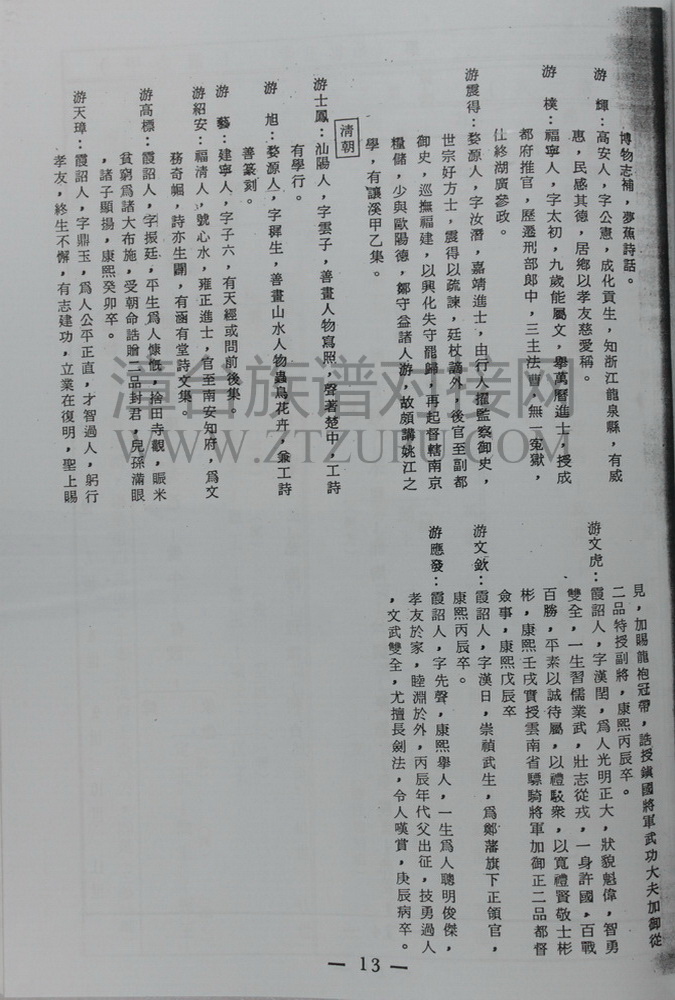 博物志補，夢蕉詩話。
游　輝：高安人，字公憲，成化貢生，知浙江龍泉縣，有威
惠，民感其德，居鄉以孝友慈愛稱。
游　樸：福寧人，字太初，九歲能屬文，舉萬曆進士，授成
都府推官，歷遷刑部郎中，三主法曹，無一冤獄，
仕終湖廣參政。
游震得：婺源人，字汝潛，嘉靖進士，由行人擢監察御史，
世宗好方士，震得以疏諫，廷杖謫外，後官至副都
御史，巡撫福建，以興化失守罷歸，再起督轄南京
糧儲，少與歐陽德，鄒守益諸人游，故頗講姚江之
學，有讓溪甲乙集。
清朝
游士鳳：汕陽人，字雲子，善畫人物寫照，聲著楚中，工詩
有學行。
游　旭：婺源人，字穉生，善畫山水人物蟲鳥花卉，兼工詩
善篆刻。
游　藝：建寧人，字子六，有天經或問前後集。
游紹安：福清人，號心水，雍正進士，官至南安知府，爲文
務奇崛，詩亦生闢，有涵有堂詩文集。
游高標：霞詔人，字振廷，平生爲人慷慨，捨田寺觀，賑米
貧窮爲諸大布施，受朝命誥贈二品封君，兒孫滿眼
，諸子顯揚，康熙癸卯卒。
游天璋：霞詔人，字鼎玉，爲人公平正直，才智過人，躬行
孝友，終生不懈，有志建功，立業在復明，聖上賜
見，加賜龍袍冠帶，誥授鎮國將軍武功大夫加御從
二品特授副將，康熙丙辰卒。
游文虎：霞詔人，字漢閏，爲人光明正大，狀貌魁偉，智勇
雙全，一生習儒業武，壯志從戎，一身許國，百戰
百勝，平素以誠待屬，以禮馭衆，以寬禮賢敬士彬
彬，康熙壬戌實授雲南省驃騎將軍加御正二品都督
僉事，康熙戊辰卒
游文欽：霞詔人，字漢日，崇禎武生，爲鄭藩旗下正領官，
康熙丙辰卒。
游應發：霞詔人，字先聲，康熙舉人，一生爲人聰明俊傑，
孝友於家，睦淵於外，丙辰年代父出征，技勇過人
，文武雙全，尤擅長劍法，令人嘆賞，庚辰病卒。
— 13 —
漳台族谱对接网
WWW.ZTZUPU.COM